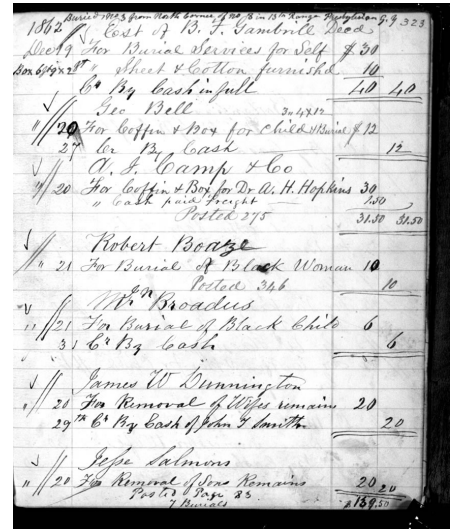 Buried No 3 from North Corner of No 8 in 13th Range Presbyterian G. Y 323
1862 Est of B. F. Gambrill Decd
Dec 19 For Burial Services for Self $ 30
Box 6ft 9 x 2 " Sheet & Cotton furnishd 10
Cr By Cash in full 40 40
Geo Bell 3 x 12
" 20 For Coffin & Box for Child & Burial $ 12
27 Cr By Cash 12
A. J. Camp & Co
" 20 For Coffin & Box for Dr A. H. Hopkins 30
" Cash paid Freight 1.50
Posted 275 31.50 31.50
Robert Boaze
" 21 For Burial of Black Woman 10
Posted 346 10
Broadus
" 21 For Burial of Black Child 6
31 Cr By Cash 6
James W Dunnington
" 20 For Removal of Wifes remains 20
29th Cr By Cash of John T Smith 20
Jesse Salmons
" 20 For Removal of Sons Remains 20 20
Posted Page 83
7 Burials $ 139.50